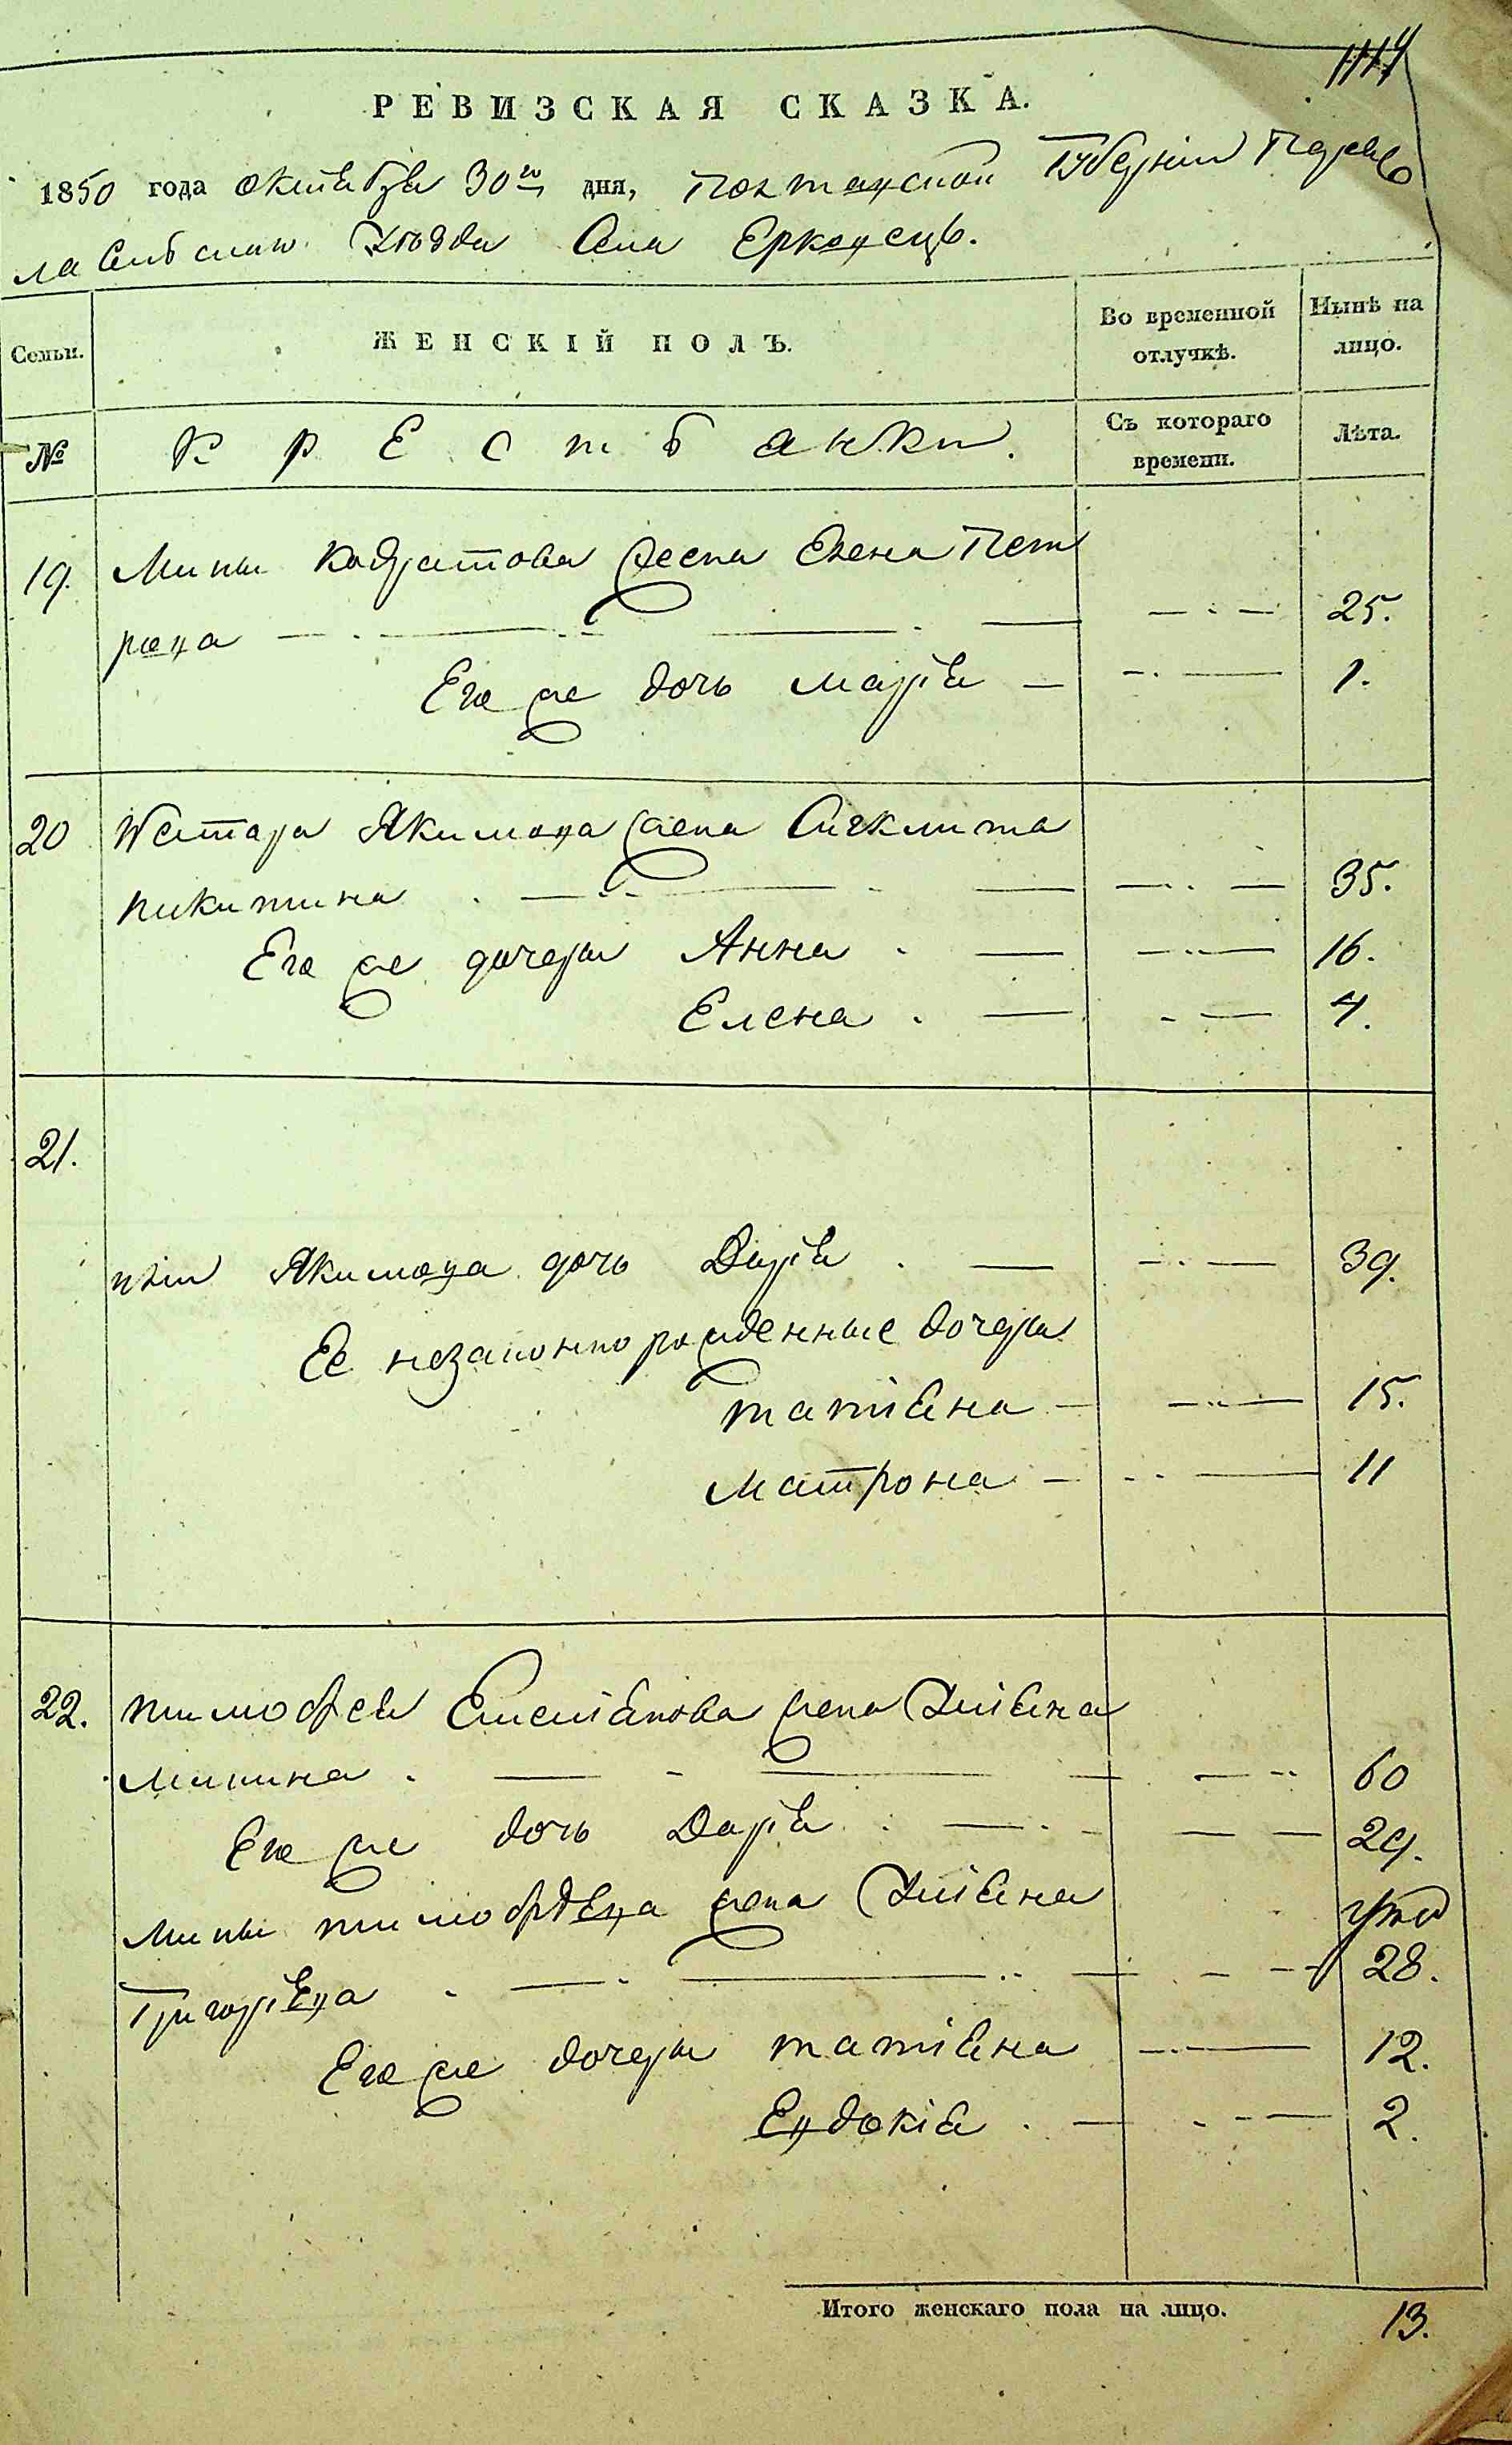 РЕВИЗСКАЯ СКАЗКА.
1850 года октября 30го дня, Полтавской Губерніи Переяс
лавского Уѣзда Села Ерковець.
Семьи.
ЖЕНСКІЙ ПОЛЪ.
Во временной отлучкѣ.
Нынѣ на лицо.
№
Крестьянки.
Съ котораго времени.
Лѣта.
19. Мины Кодратова жена Елена Пет
рова 25.
Его же дочь Марія 1.
20 Нестора Якимова жена Сиклита
Никитина 35.
Его же дочери Анна 16.
Елена 4.
21.
Якимова дочь Дарія 39.
Ее незаконнорожденные дочери
Татіяна 15.
Матрона 11
22. Тимофея Емеліянова жена Уліяна
Минина 60
Его же дочь Дарія 29.
Мины Тимофѣева жена Уліяна
Григоріева 28.
Его же дочери Татіяна 12.
Евдокія 2.
Итого женскаго пола на лицо. 13.